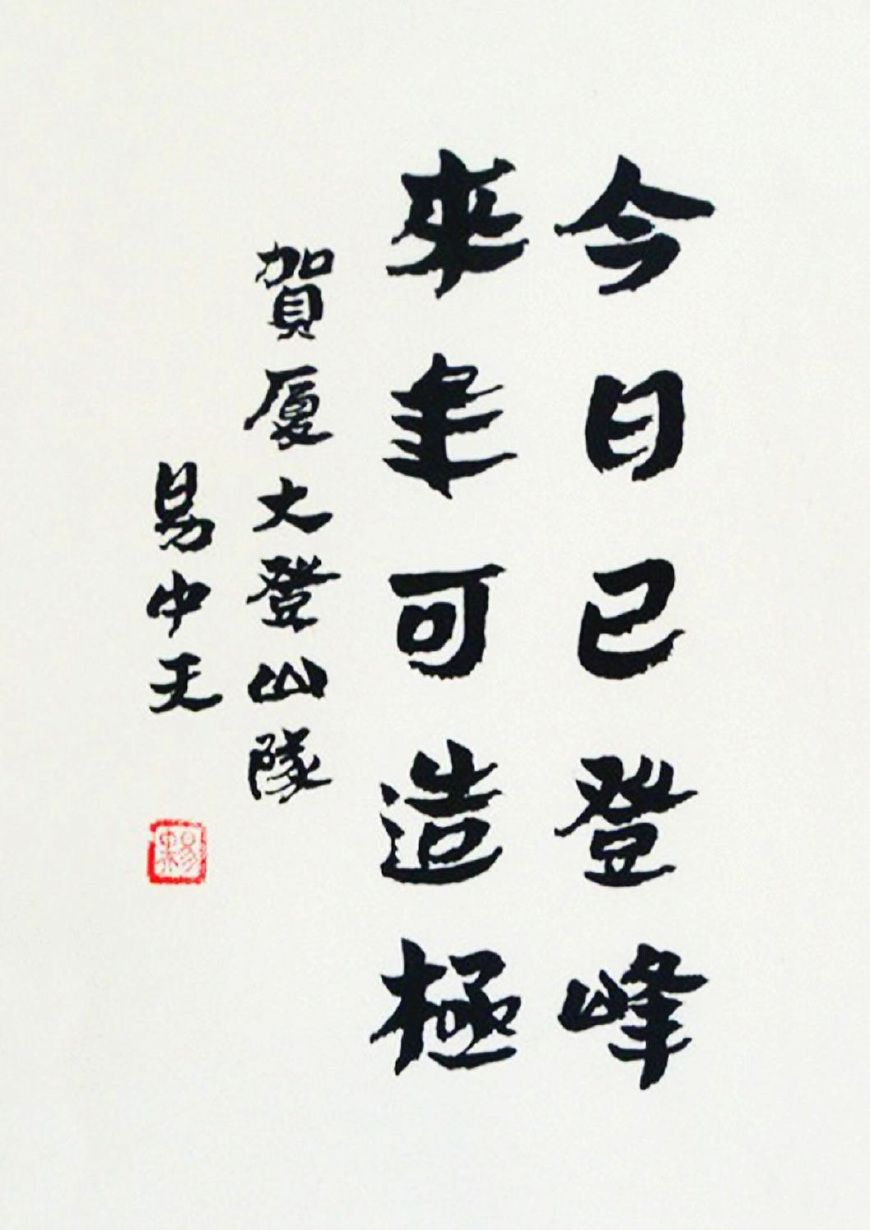 今日已登峰
來年可造極
賀厦大登山隊
易中天